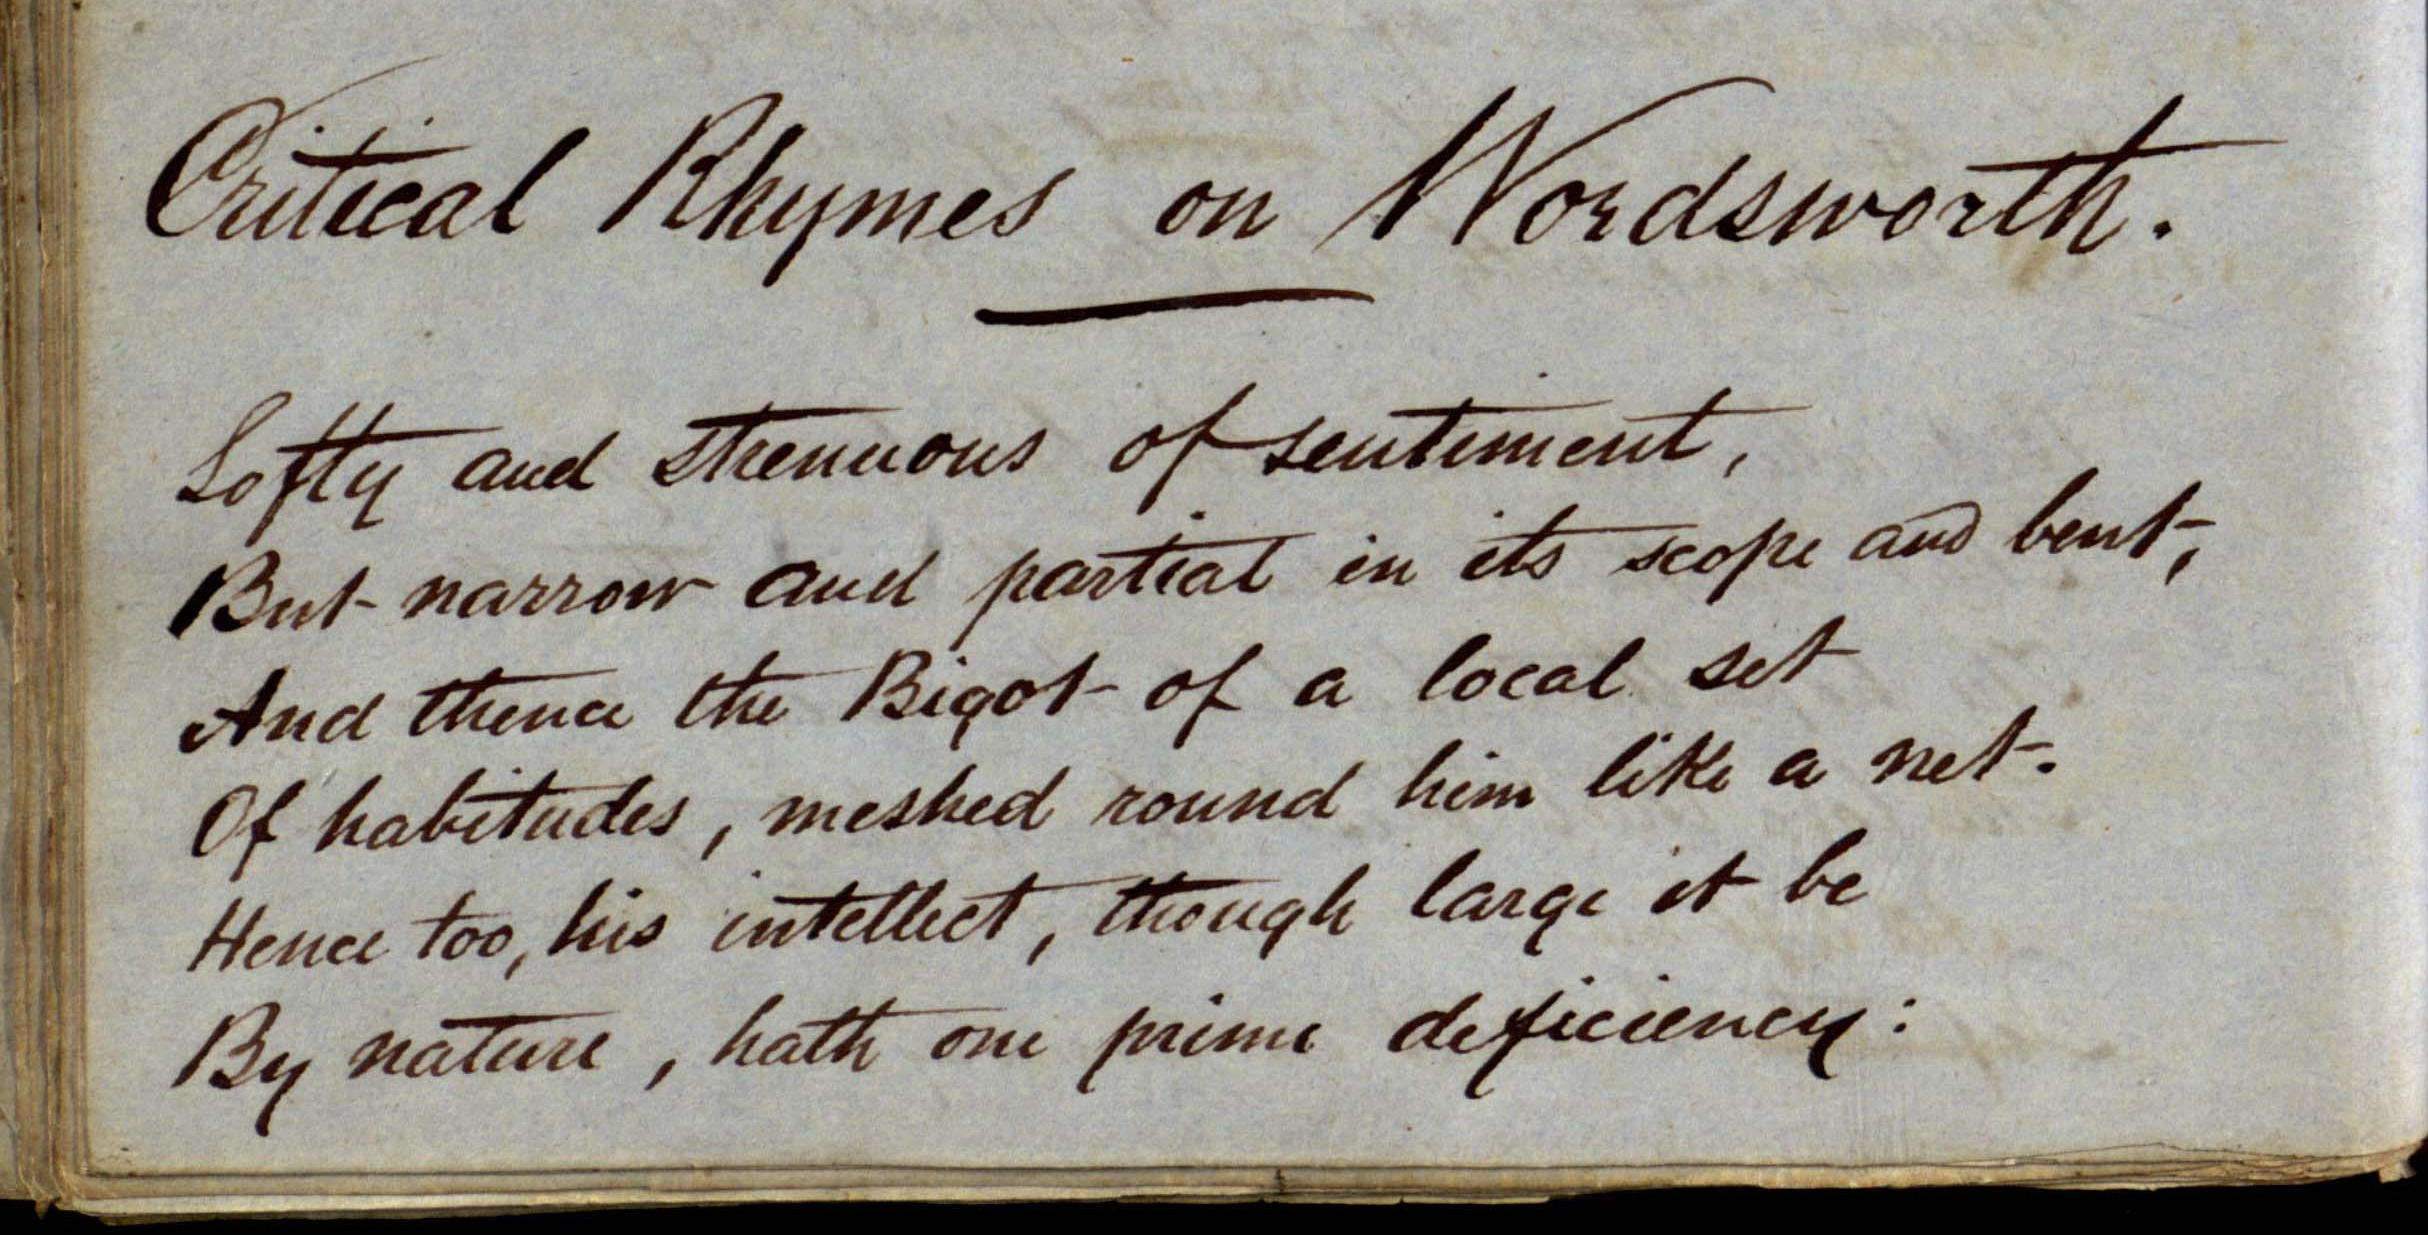 Critical Rhymes on Wordsworth.
Lofty and strenuous of sentiment,
But narrow and partial in its scope and bent,
And thence the Bigot of a local set
Of habitudes, meshed round him like a net.
Hence too, his intellect, though large it be
By nature, hath one prime deficiency: